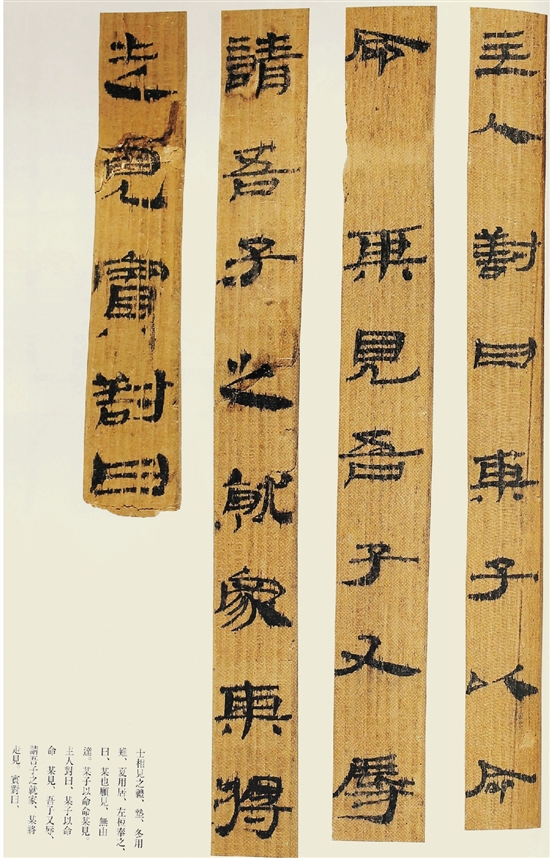 主人對曰某子以命
命某見吾子又辱
請吾子之就家某將
走見賓對曰
士相見之禮、摯、冬用
雉、夏用居、左梪奉之、
曰、某也願見、無由
達。某子以命命某見。
主人對曰、某子以命
命 某見、吾子又辱、
請吾子之就家、某將
走見、賓對曰、